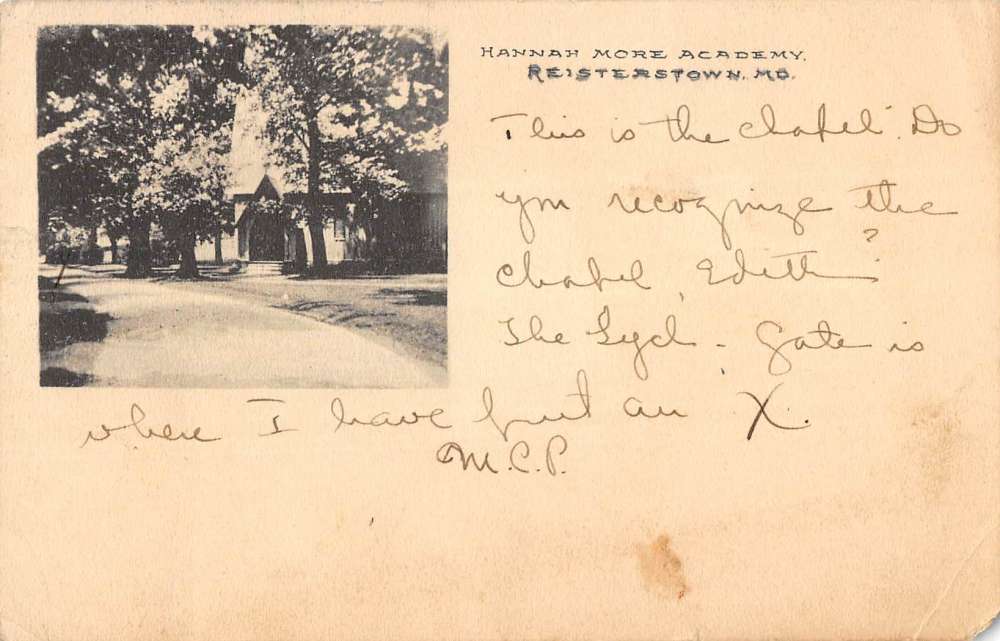 HANNAH MORE ACADEMY,
REISTERSTOWN, MD.
This is the chapel. Do
you recognize the
chapel, Edith?
The Lych-Gate is
where I have put an X.
M.C.P.